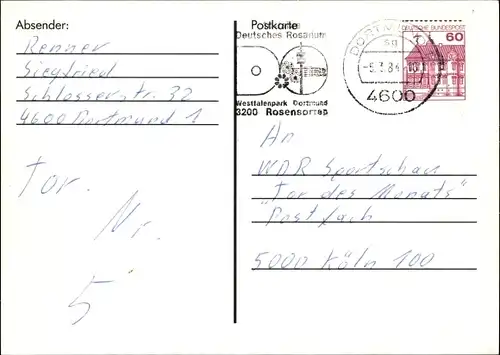 Absender:
Renner
Siegfried
Schlosserstr. 32
4600 Dortmund 1
Tor.
Nr.
5
Postkarte
Deutsches Rosarium
Westfalenpark Dortmund
3200 Rosensorten
DORTMUND
sg
-5.3.84
4600
60
DEUTSCHE BUNDESPOST
An
WDR Sportschau
"Tor des Monats"
"Postfach
5000 Köln 100